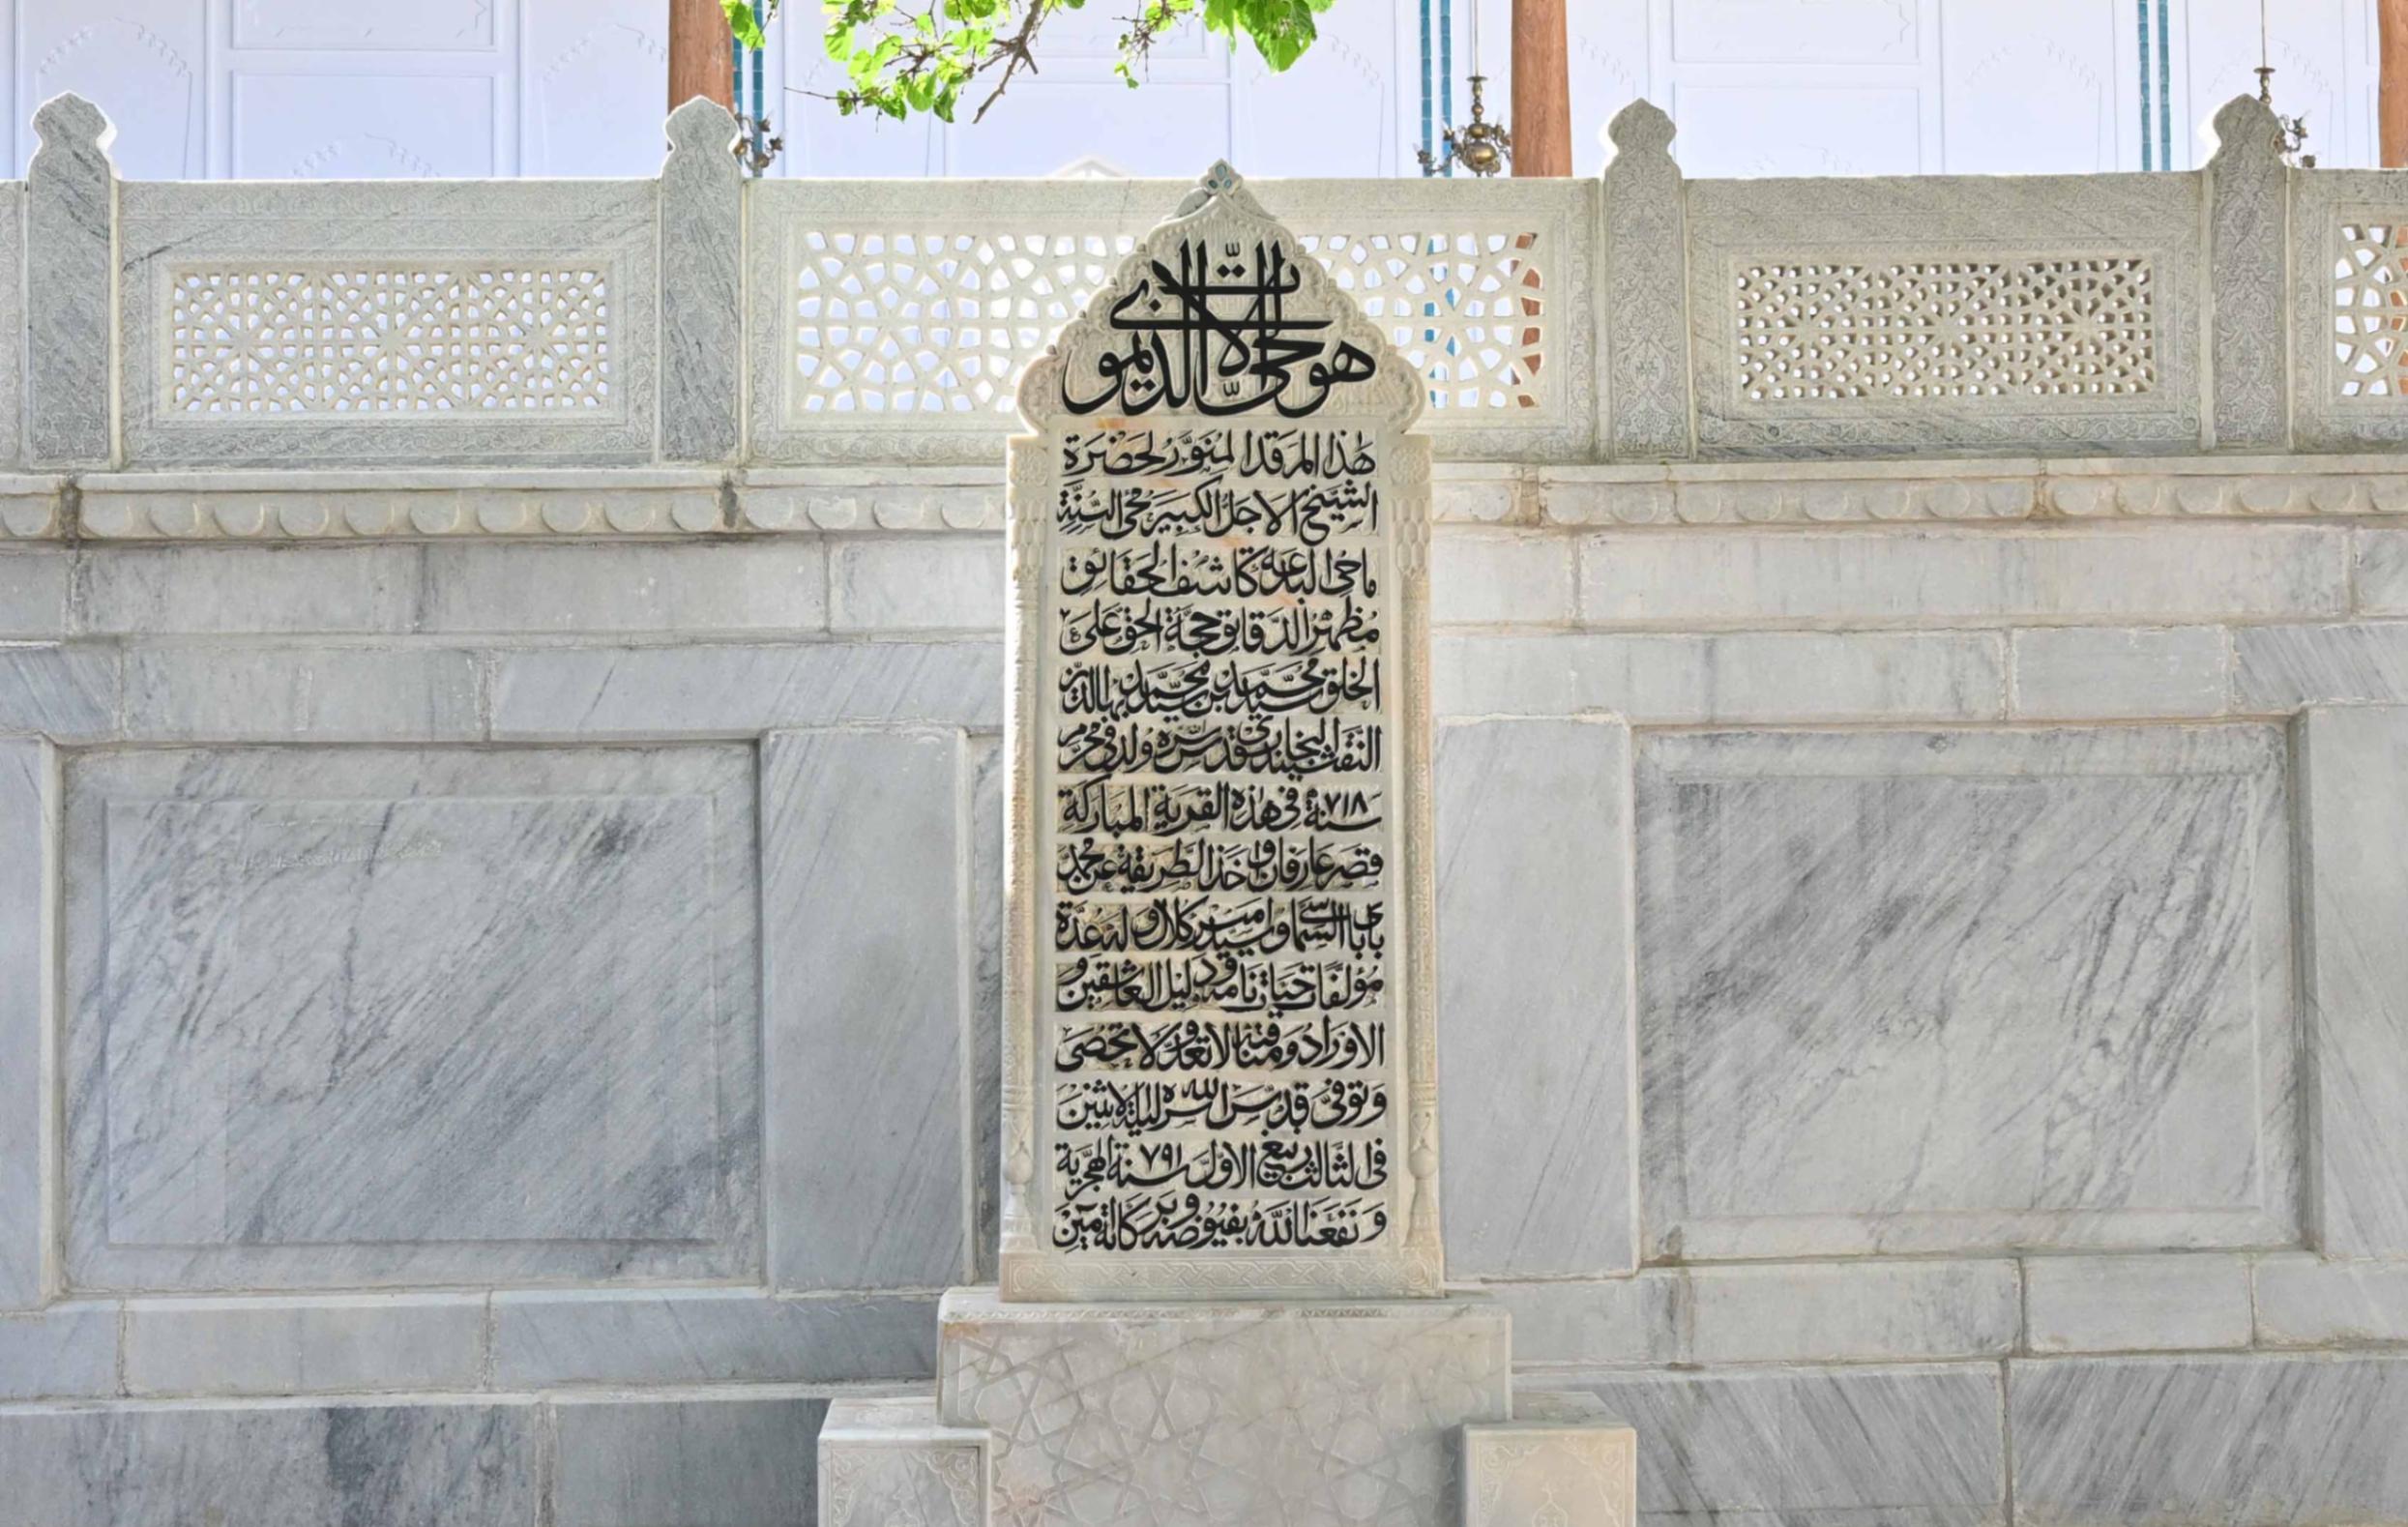 هو الحی الذی لا یموت
هٰذَا المَرقَدُ المُنَوَّرُ لِحَضْرَةِ
الشَّیْخِ الاَجَلِّ الکَبِیرِ مُحْیِ السُّنَّةِ
مَاحِی البِدعَةِ کَاشِفِ الحَقَائِقِ
مُظْهِرِ الدَّقَایِقِ حُجَّةِ الحَقِّ عَلیَ
الخَلقِ سَیِّد مُحَمَّد بن سَیِّد مُحَمَّد بهاالدّین
النَّقشبَندِی البُخَارِی قُدِّسَ سِرُّهُ وُلِدَ فِی مُحَرَّم
سنة ٧١٨ فِی هٰذِهِ القَریَةِ المُبَارَکَةِ
قَصرِ عَارِفَان وَاَخَذَ الطَّرِیقَةَ عَن مُحَمَّد
بَابَای السَّمَاسِی وَسَیِّد اَمِیر کُلَال وَ لَهُ عِدَّةُ
مُؤَلَّفَات حَیَات نَامَه وَ دَلِیل العَاشِقِینَ وَ
الاَورَاد وَ مَنَاقِبُهُ لَا تُعَدُّ وَ لَا تُحْصَی
وَ تُوُفِّیَ قَدَّسَ اللّٰه سِرَّهُ لَیلَةَ الاِثْنَیْنِ
فِی الثَّالِث رَبِیع الاَوَّل سنة ٧٩١ الهِجرِیَّةِ
وَ نَفَعَنَا اللّٰهُ بِفُیُوضِهِ وَ بَرَکَاتِهِ آمین